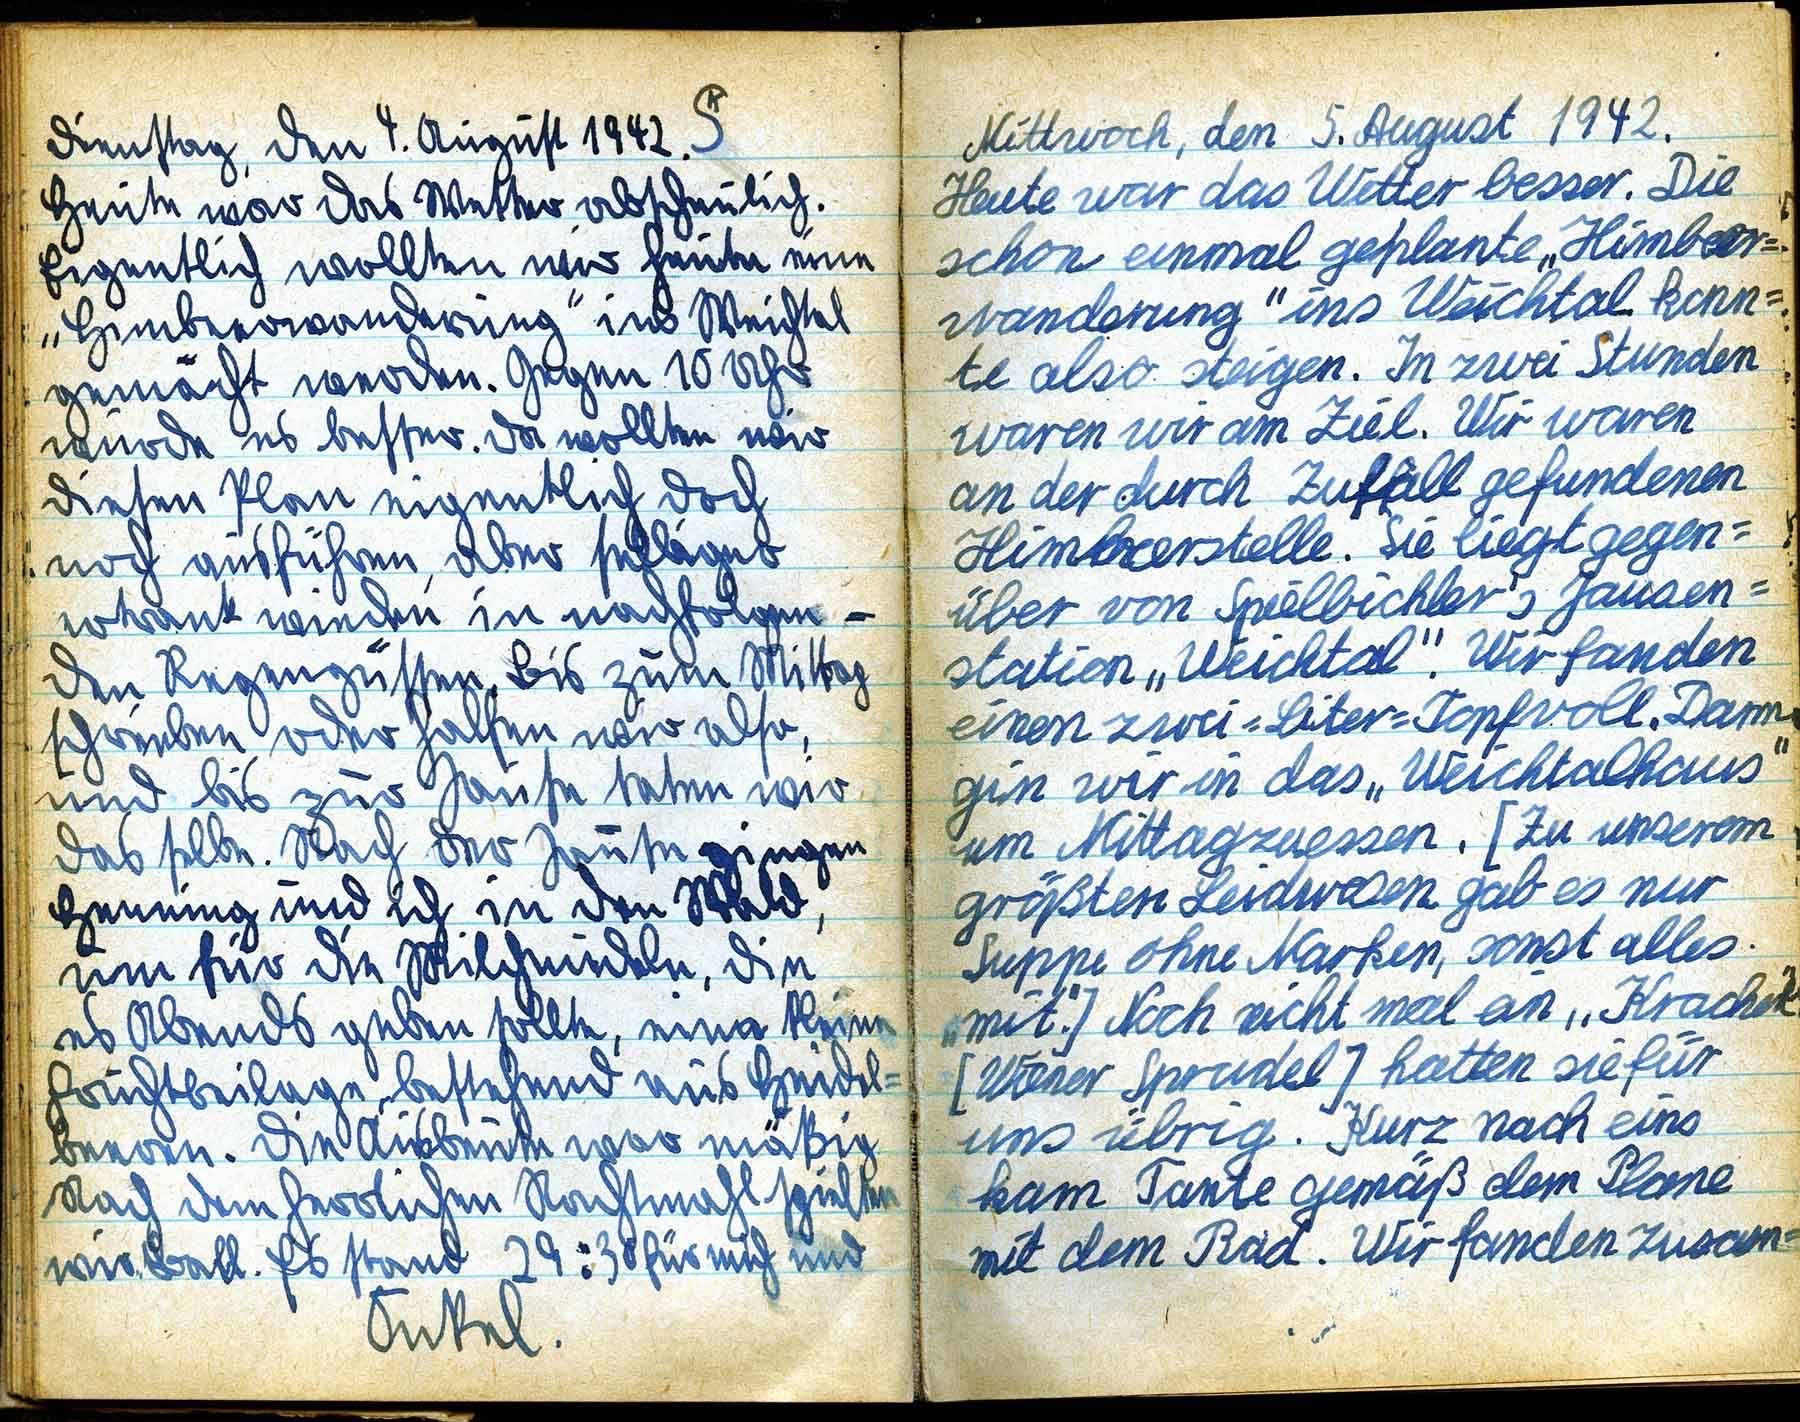 Dienstag, den 4. August 1942.
Heute war das Wetter abscheulich.
Eigentlich wollten wir heute eine
„Himbeerwanderung" ins Weichtal
gemacht werden. Gegen 10 Uhr
wurde es besser. Da wollten wir
diesen Plan eigentlich doch
noch ausführen, aber selbiger
ertrank wieder in nachfolgen-
den Regengüssen. Bis zum Mittag
schrieben oder halfen wir also,
und bis zur Jause taten wir
das selbe. Nach der Jause gingen
Henning und ich in den Wald,
um für die Milchnudeln, die
es Abends geben sollte, eine kleine
Fruchtbeilage, bestehend aus Heidel=
beeren. Die Ausbeute war mäßig
Nach dem herrlichen Nachtmahl spielten
wir Ball. Es stand 29:30 für mich und
Onkel.
Mittwoch, den 5. August 1942.
Heute war das Wetter besser. Die
schon einmal geplante „Himbeer=
wanderung" ins Weichtal konn=
te also steigen. In zwei Stunden
waren wir am Ziel. Wir waren
an der durch Zufall gefundenen
Himbeerstelle. Sie liegt gegen=
über von Spielbichler's Jausen=
station „Weichtal". Wir fanden
einen zwei=Liter=Topf voll. Dann
gin wir in das „Weichtalhaus"
um Mittagzuessen. [Zu unserem
größten Leidwesen gab es nur
Suppe ohne Marken, sonst alles
„mit".] Noch nicht mal ein „Kracherl"
[Wiener Sprudel] hatten sie für
uns übrig. Kurz nach eins
kam Tante gemäß dem Plane
mit dem Rad. Wir fanden zusam=